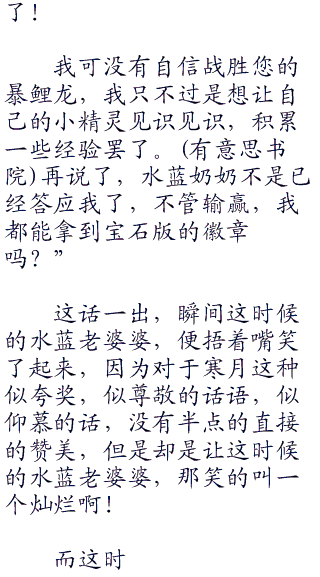 了！
我可没有自信战胜您的
暴鲤龙，我只不过是想让自
己的小精灵见识见识，积累
一些经验罢了。(有意思书
院)再说了，水蓝奶奶不是已
经答应我了，不管输赢，我
都能拿到宝石版的徽章
吗？”
这话一出，瞬间这时候
的水蓝老婆婆，便捂着嘴笑
了起来，因为对于寒月这种
似夸奖，似尊敬的话语，似
仰慕的话，没有半点的直接
的赞美，但是却是让这时候
的水蓝老婆婆，那笑的叫一
个灿烂啊！
而这时